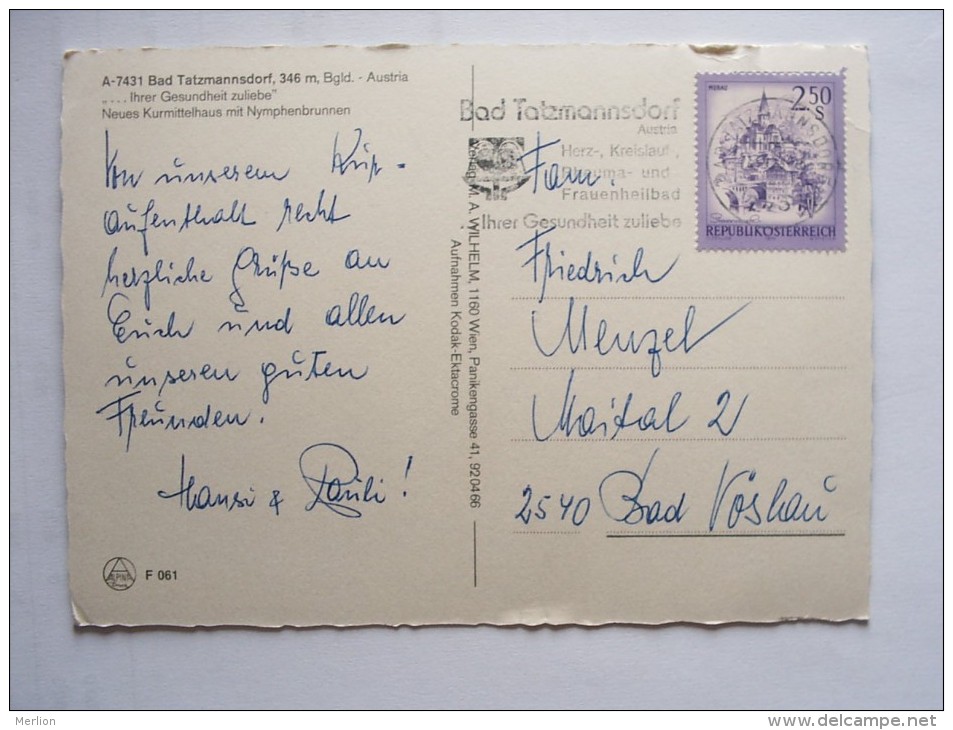 A-7431 Bad Tatzmannsdorf, 346 m, Bgld. - Austria
„... Ihrer Gesundheit zuliebe"
Neues Kurmittelhaus mit Nymphenbrunnen
Von unserem Kur-
aufenthalt recht
herzliche Grüße an
Euch und allen
unseren guten
Freunden.
Hansi & Pauli!
F 061
Verlag M. A. WILHELM, 1160 Wien, Panikengasse 41, 920466
Aufnahmen Kodak-Ektacrome
Bad Tatzmannsdorf
Austria
Herz-, Kreislauf-,
Rheuma- und
Frauenheilbad
...Ihrer Gesundheit zuliebe
MURAU
2.50
S
REPUBLIK ÖSTERREICH
BAD TATZMANNSDORF
Fam.
Friedrich
Menzel
Maital 2
2540 Bad Vöslau
Merlion
www.delcampe.net